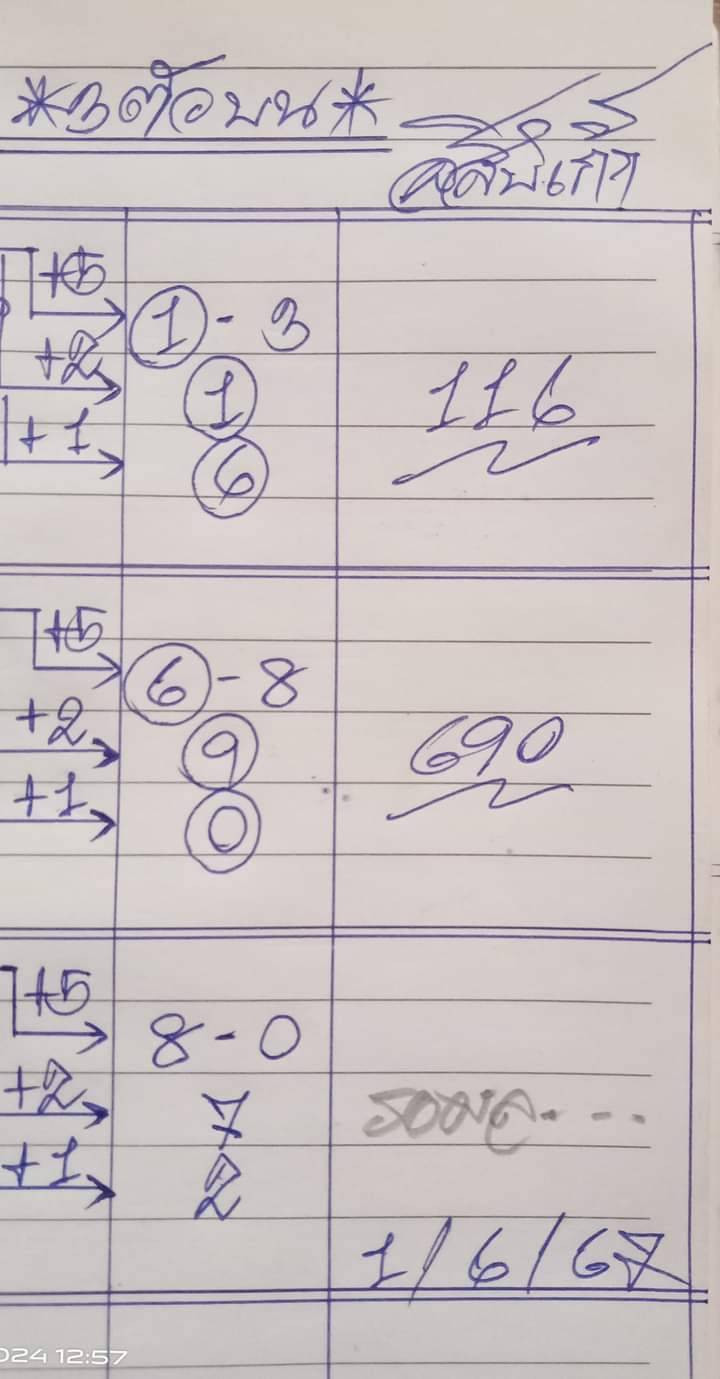 *3ตัวบน*
สิบเก้า
+5
1 - 3
+2
1
116
+1
6
+5
6 - 8
+2
9
690
+1
0
+5
8 - 0
+2
7
รอผล...
+1
2
1/6/67
024 12:57